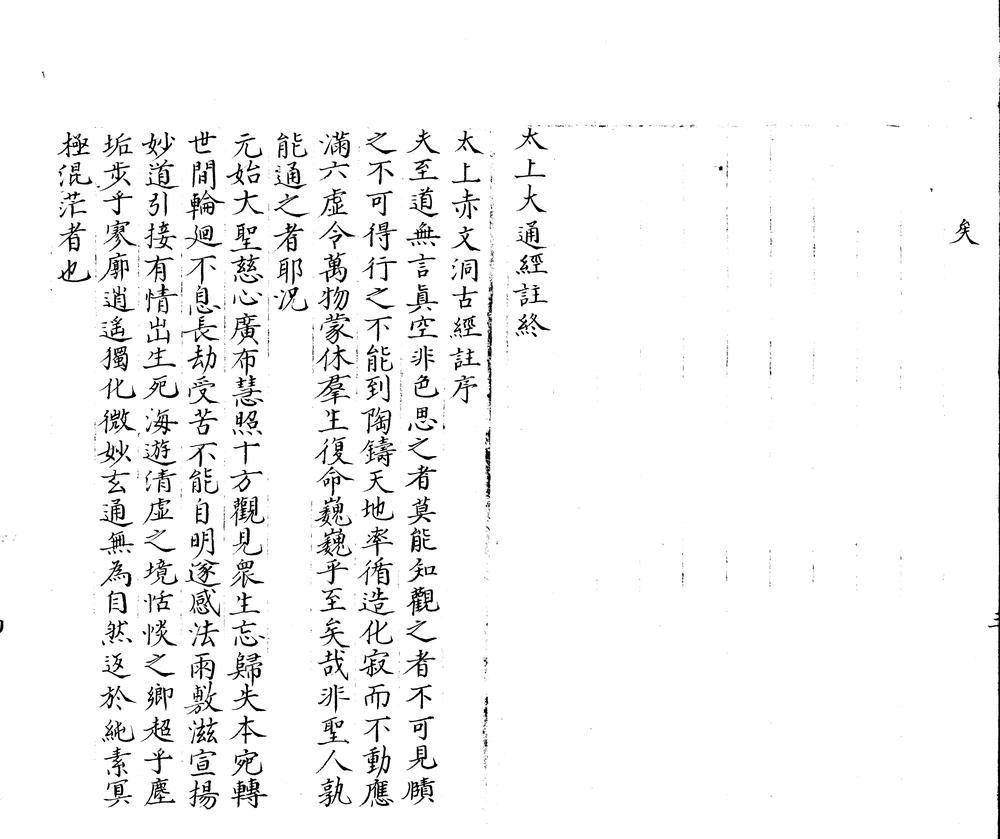 矣
太上大通經註終
太上赤文洞古經註序
夫至道無言眞空非色思之者莫能知觀之者不可見賾
之不可得行之不能到陶鑄天地率循造化寂而不動應
滿六虛令萬物蒙休羣生復命巍巍乎至矣哉非聖人孰
能通之者耶況
元始大聖慈心廣布慧照十方觀見衆生忘歸失本宛轉
世間輪廻不息長劫受苦不能自明遂感法雨敷滋宣揚
妙道引接有情出生死海遊清虛之境恬惔之鄉超乎塵
垢步乎寥廓逍遙獨化微妙玄通無為自然返於純素冥
極混茫者也